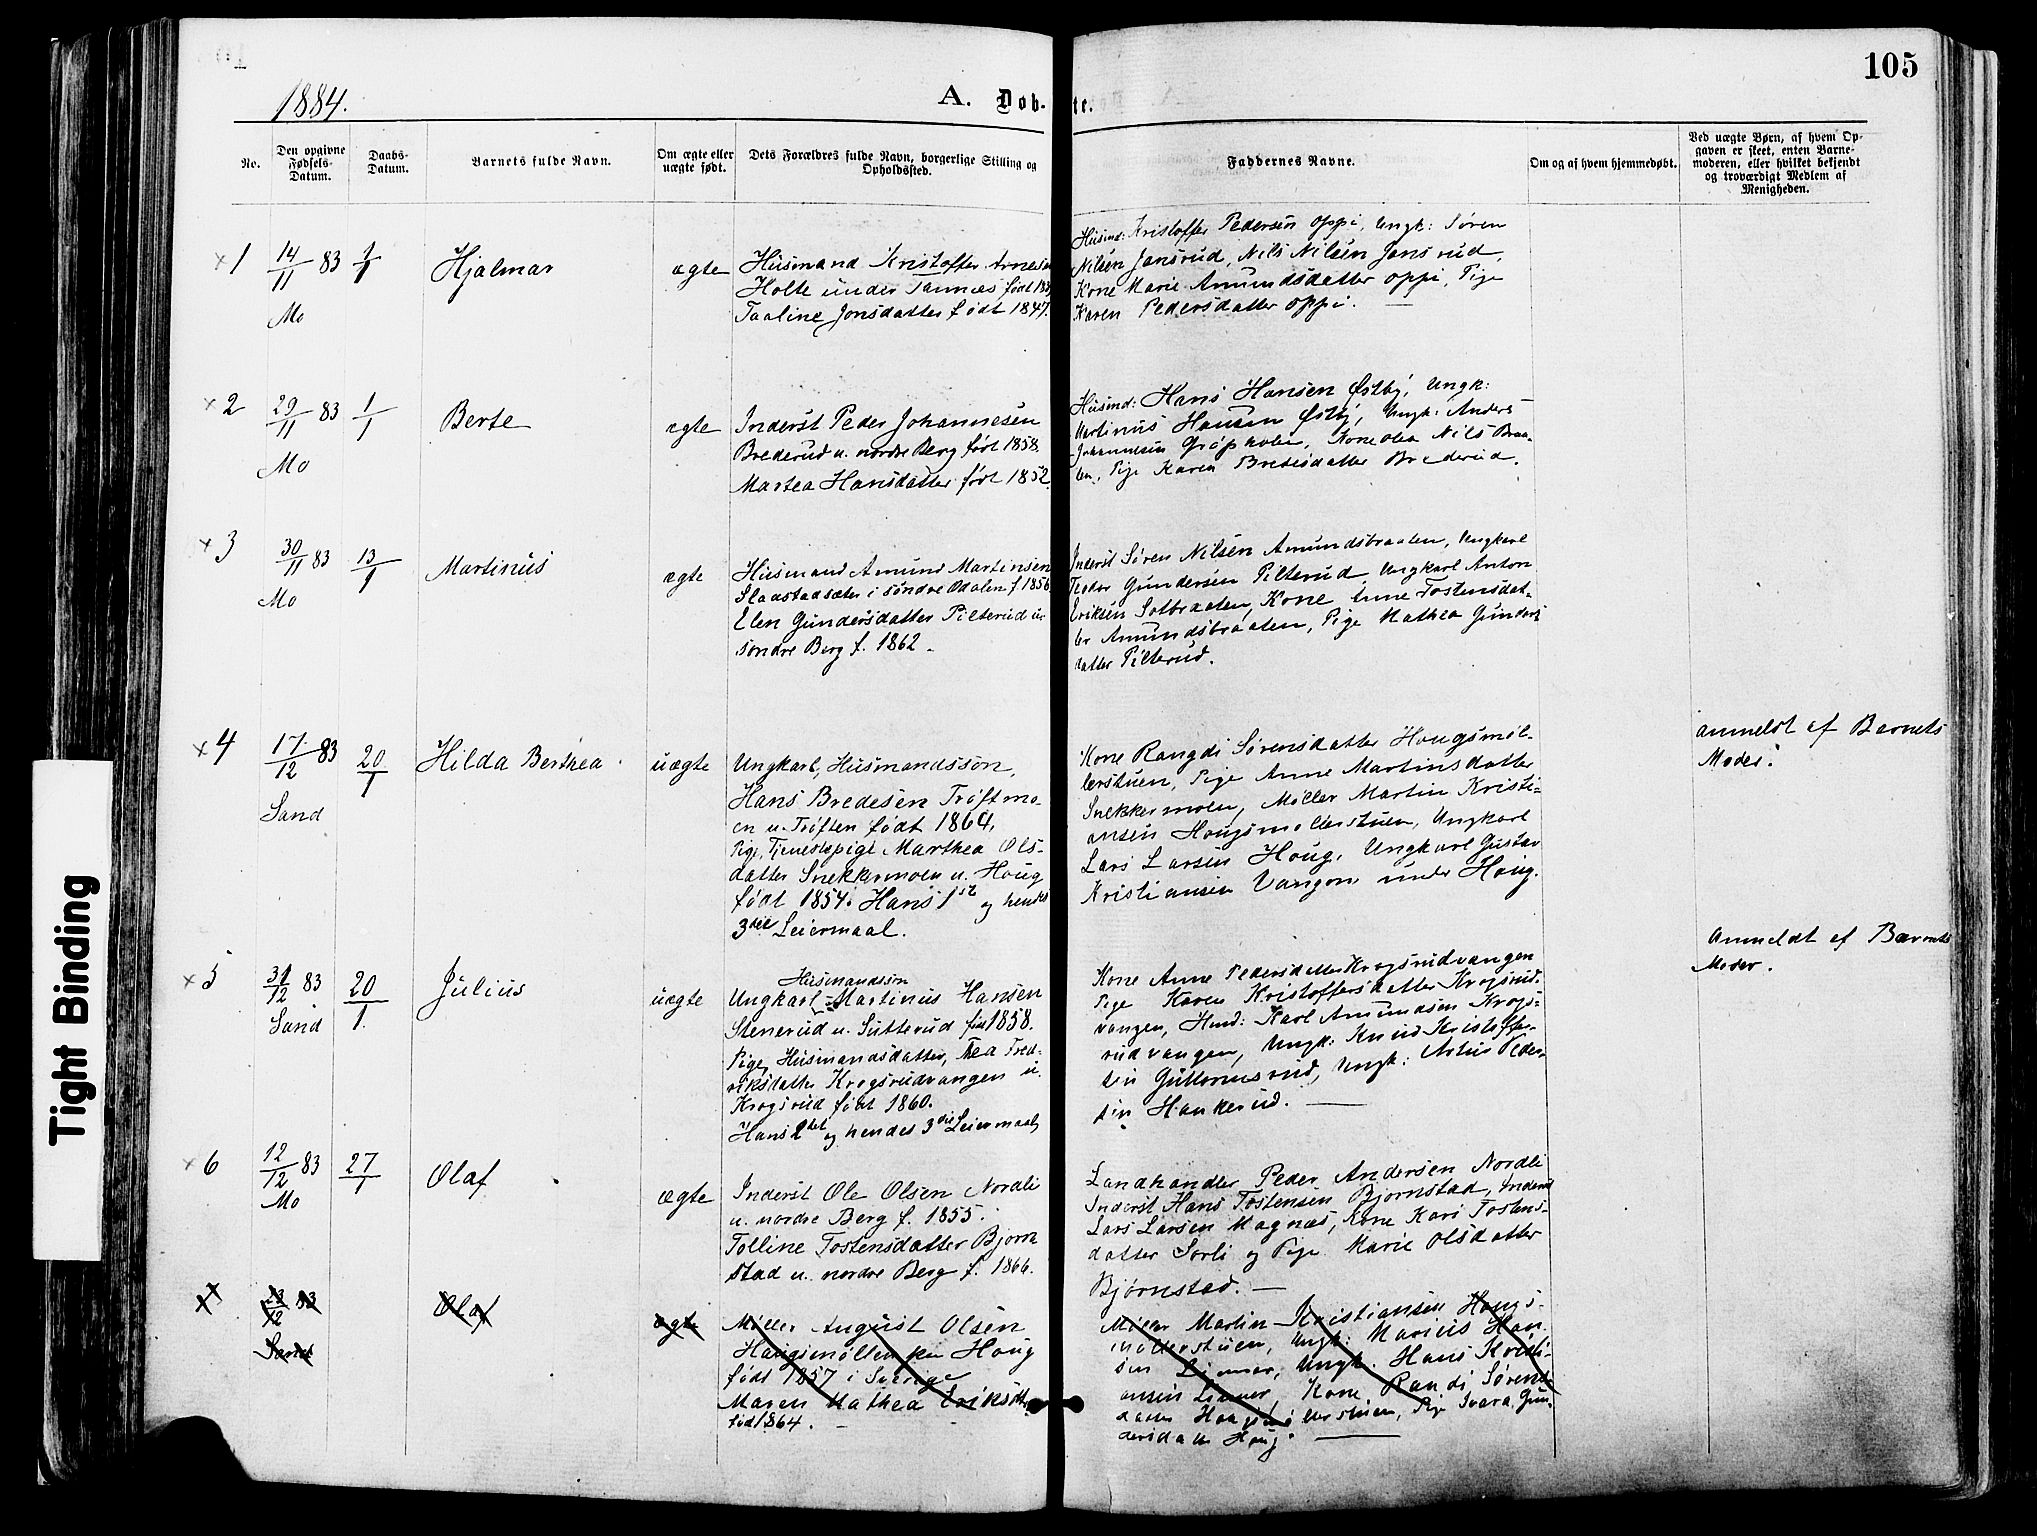 105
1884.
A. Døb-
te.
No.
Den opgivne Fødsels-Datum.
Daabs-Datum.
Barnets fulde Navn.
Om ægte eller uægte født.
Dets Forældres fulde Navn, borgerlige Stilling og Opholdssted.
Faddernes Navne.
Om og af hvem hjemmedøbt.
Ved uægte Børn, af hvem Op-
gaven er skeet, enten Barne-
moderen, eller hvilket bekjendt
og troværdigt Medlem af
Menigheden.
×1 14/11 83 1/1 Hjalmar ægte
Mo
Husmand Kristoffer Arnesen
Holte under Tannæs født
Taaline Jonsdatter født 1847.
Husmd: Kristoffer Pedersen Oppi, Ungk: Søren
Nilsen Jonsrud, Nils Nilsen Jonsrud,
Kone Marie Amundsdatter Oppi, Pige
Karen Pedersdatter Oppi.
×2 29/11 83 1/1 Berte ægte
Mo
Inderst Peder Johannesen
Brederud u. nordre Berg født 1858.
Martea Hansdatter født 1852.
Husmd: Hans Hansen Østby, Ungk:
Martinus Hansen Østby, Ungk: Anders
Johannesen Kone Olea Nils Braa-
ten, Pige Karen Bredesdatter Brederud.
×3 30/11 83 13/1 Martinus ægte
Mo
Husmand Amund Martinsen
Slaastadsæter i søndre Odalen f. 1856
Elen Gundersdatter Pilterud u.
søndre Berg f. 1862.
Inderst Søren Nilsen Amundsbraaten, Ungkarl
Teodor Gundersen Pilterud, Ungkarl Anton
Eriksen Solbraaten, Kone Anne Tostensdat-
ter Amundsbraaten, Pige Mathea Gunders
datter Pilterud.
×4 17/12 83 20/1 Hilda Berthea uægte
Sand
Ungkarl, Husmandssøn,
Hans Bredesen Trøftmo-
en u. Trøften født 1864.
Pige, Tjenestepige Marthea Ols-
datter Snekkermoen u. Houg
født 1854. Hans 1ste og hendes
3die Leiermaal.
Kone Rangdi Sørensdatter Hougsmøl-
lerstuen, Pige Anne Martinsdatter
Snekkermoen, Møller Martin Kristi-
ansen Hougsmøllerstuen, Ungkarl
Lars Larsen Houg, Ungkarl Gustav
Kristiansen Vangen under Houg.
anmeldt af Barnets
Moder.
×5 31/12 83 20/1. Julius uægte
Sand
Husmandssøn
Ungkarl Martinus Hansen
Stenerud u. Sutterud født 1858.
Pige, Husmandsdatter, Thea Fred-
riksdatter Krogsrudvangen u.
Krogsrud født 1860.
Hans 2det og hendes 3die Leiermaal
Kone Anne Pedersdatter Krogsrudvangen
Pige Karen Kristoffersdatter Krogsrud-
vangen, Husmd: Karl Amundsen Krogs-
rudvangen, Ungk: Knud Kristoffer-
sen Guttormsrud, Ungk: Peder-
sen Haukerud.
Anmeldt af Barnets
Moder.
×6 12/12 83 27/1 Olaf ægte
Mo
Inderst Ole Olsen Nordli
u. nordre Berg f. 1855.
Tolline Tostensdatter Bjørn
stad u. nordre Berg f. 1866.
Landhandler Peder Andersen Nordli
Inderst Hans Tostensen Bjørnstad, Inderst
Lars Larsen Magnæs, Kone Kari Tostens-
datter Sorli og Pige Marie Olsdatter
Bjørnstad.
23/12 83 Olaf ægte
Sand
Møller August Olsen
Hougsmøllen paa Houg
født 1857 i Sverige
Maren Mathea Eriksdtr.
født 1864.
Møller Martin Kristiansen Hougs-
møllerstuen, Ungk: Marius Han-
sen Ungk. Hans Kristi-
ansen Kone Randi Sørens
datter Hougsmøllerstuen, Pige Gun-
dersdatter Houg.
Tight Binding